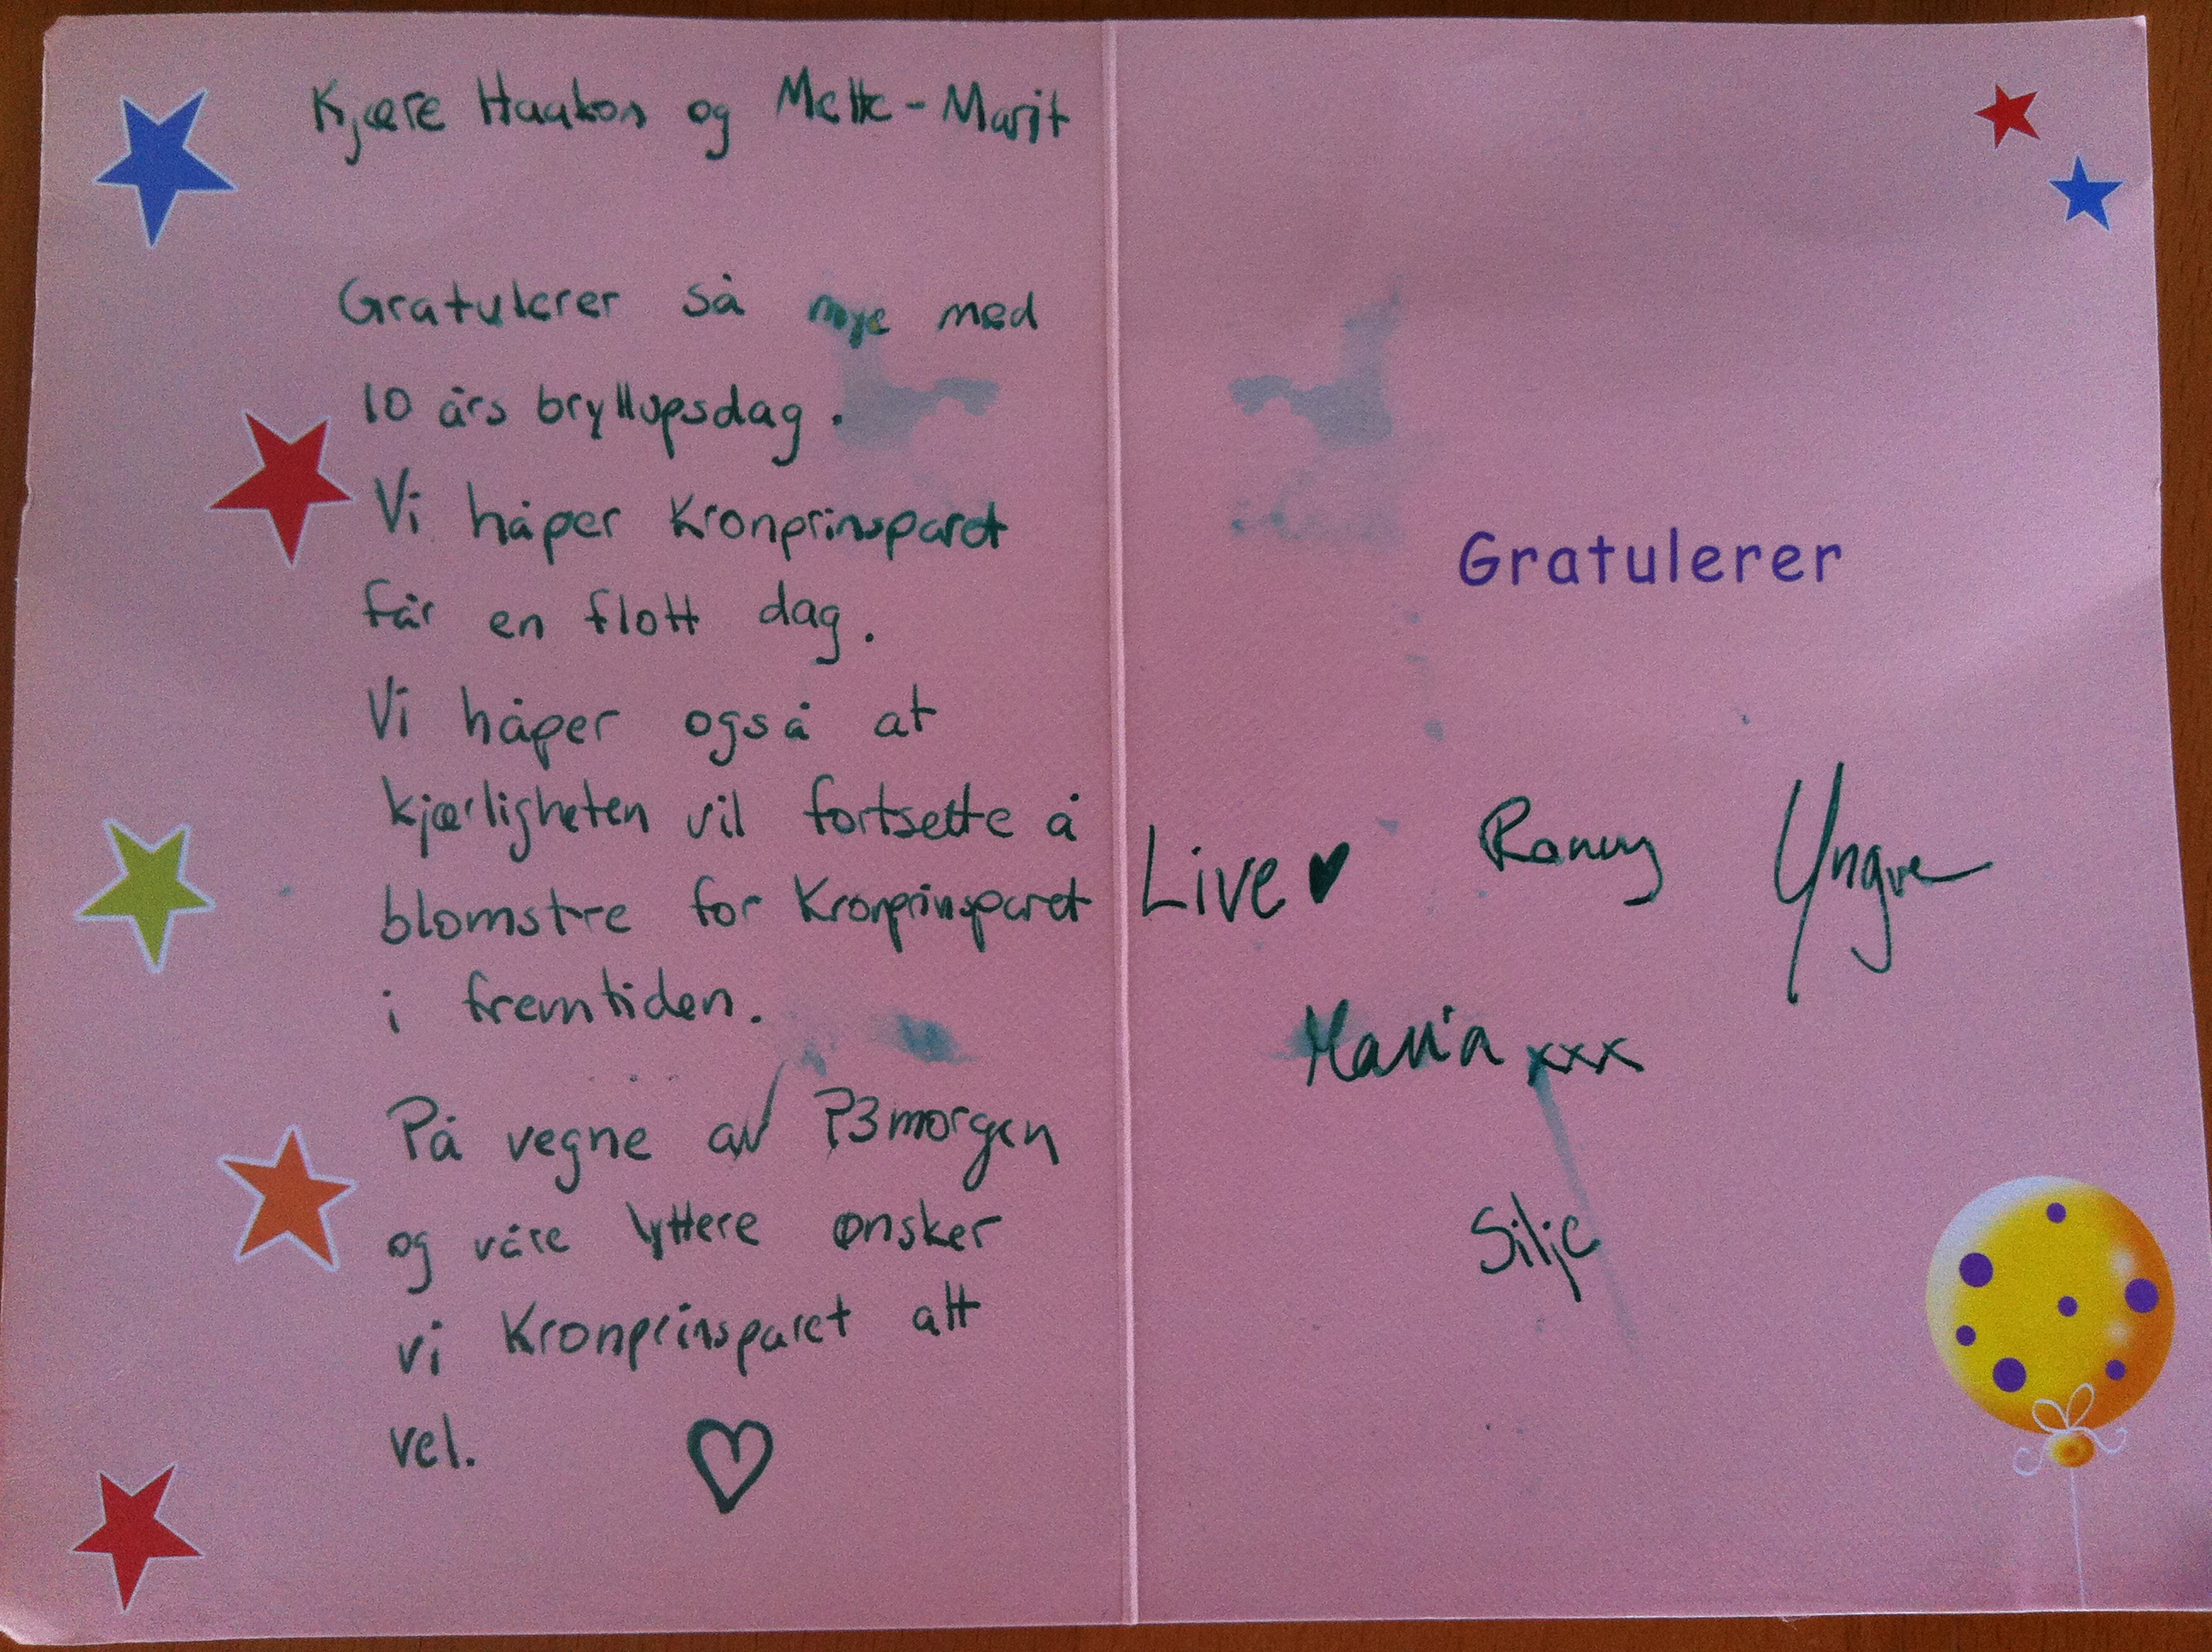 Kjære Haakon og Mette-Marit
Gratulerer så mye med
10 års bryllupsdag.
Vi håper Kronprinsparet
får en flott dag.
Vi håper også at
kjærligheten vil fortsette å
blomstre for Kronprinsparet
i fremtiden.
På vegne av P3morgen
og våre lyttere ønsker
vi Kronprinsparet alt
vel.
Gratulerer
Live ♥ Ronny Yngve
Maria xxx
Silje